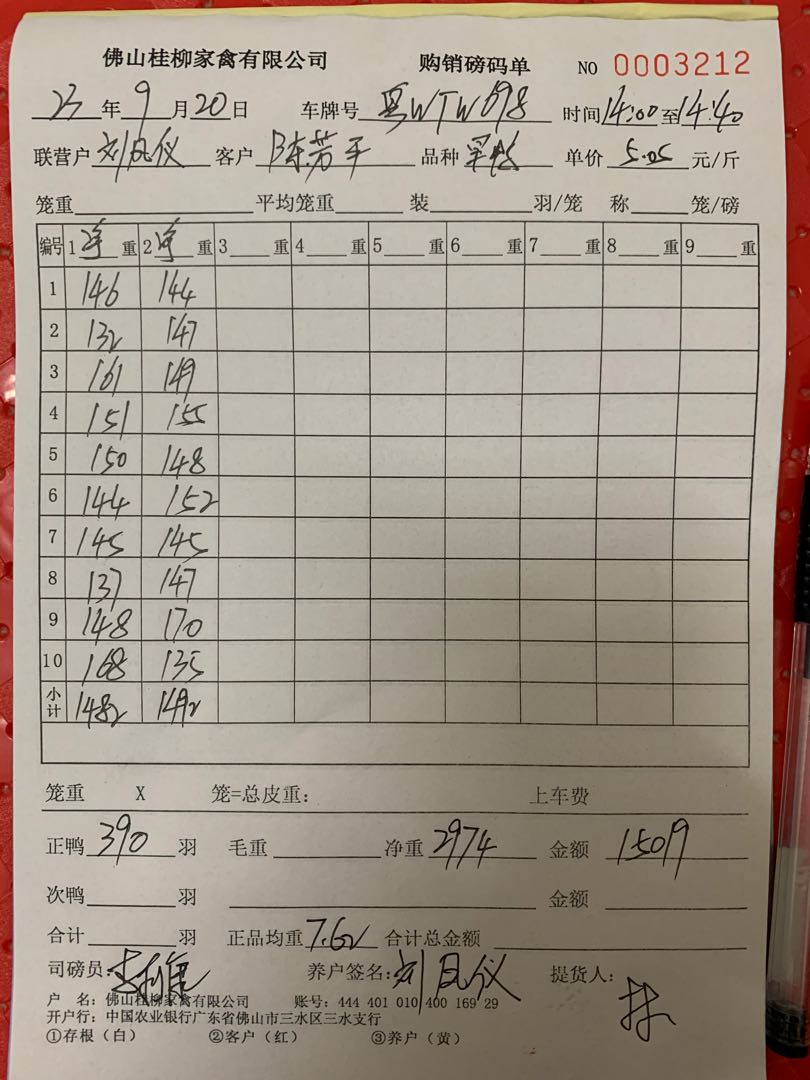 佛山桂柳家禽有限公司 购销磅码单 NO 0003212
23年9月20日 车牌号 粤WTW698 时间14:00至14:40
联营户 刘凤仪 客户 陈芳平 品种 单价 5.05 元/斤
笼重 平均笼重 装 羽/笼 称 笼/磅
编号 1净重 2净重 3 重 4 重 5 重 6 重 7 重 8 重 9 重
1 146 144
2 132 147
3 161 149
4 151 155
5 150 148
6 144 152
7 145 145
8 137 147
9 148 170
10 168 135
小计 1482 1492
笼重 X 笼=总皮重: 上车费
正鸭 390 羽 毛重 净重 2974 金额 15019
次鸭 羽 金额
合计 羽 正品均重 7.62 合计总金额
司磅员: 养户签名: 刘凤仪 提货人:
户 名: 佛山桂柳家禽有限公司 账号: 444 401 010 400 169 29
开户行: 中国农业银行广东省佛山市三水区三水支行
①存根(白) ②客户(红) ③养户(黄)